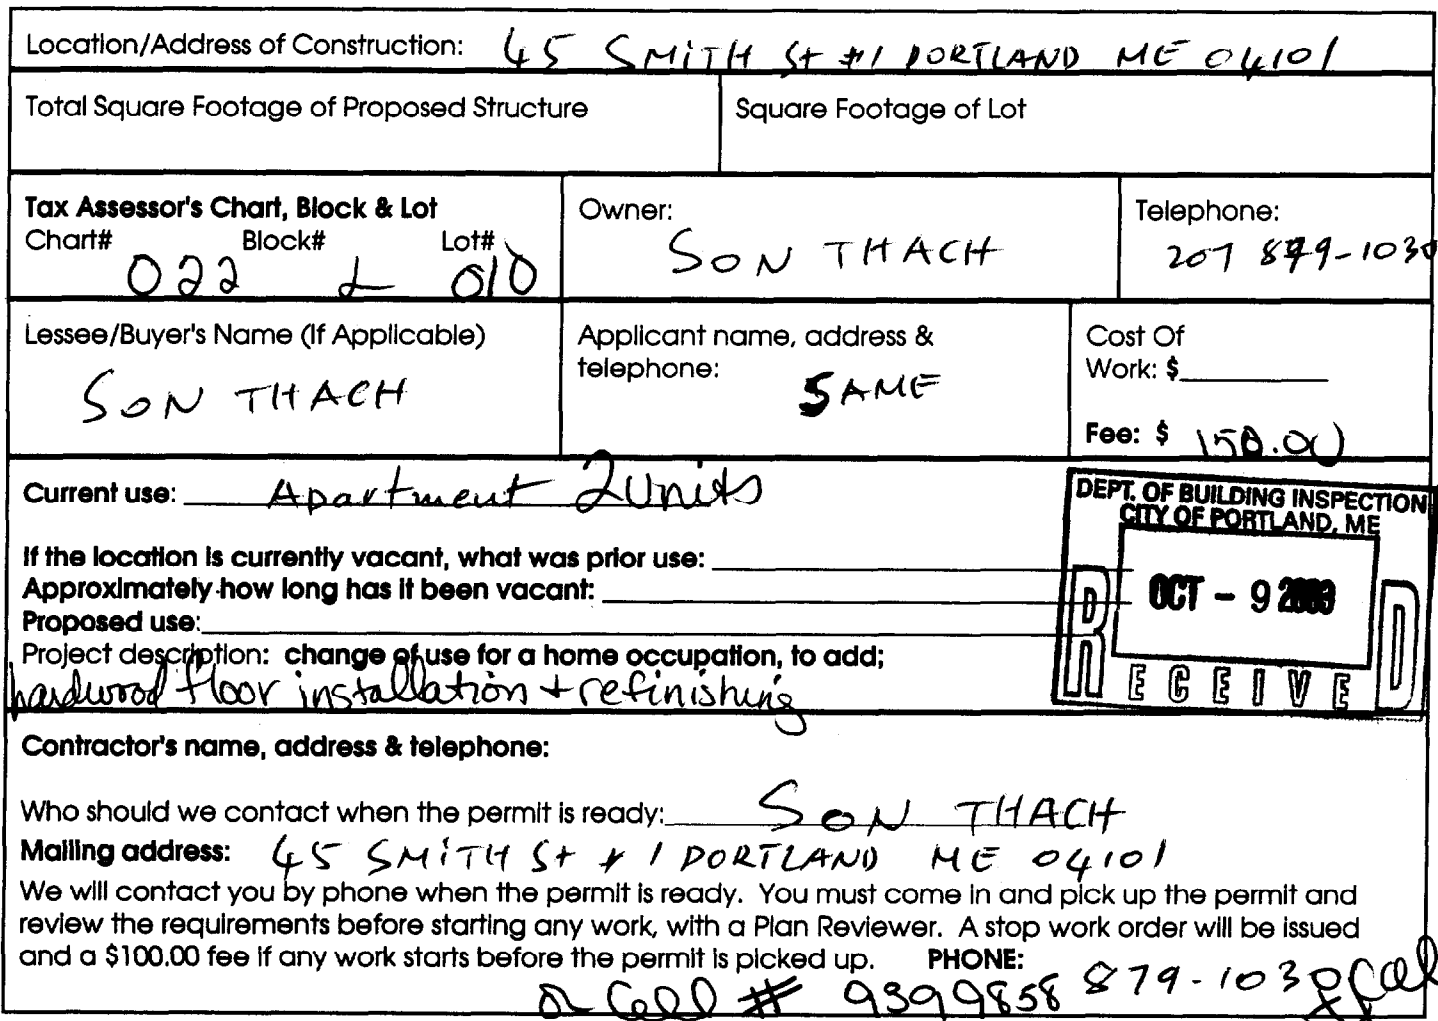 Location/Address of Construction: 45 SMiTH St #1 PORTLAND ME 04101
Total Square Footage of Proposed Structure
Square Footage of Lot
Tax Assessor's Chart, Block & Lot
Chart# Block# Lot#
022 L 010
Owner:
SON THACH
Telephone:
207 879-1030
Lessee/Buyer's Name (If Applicable)
SON THACH
Applicant name, address &
telephone:
SAME
Cost Of
Work: $
Fee: $ 150.00
Current use: Apartment 2 Units
If the location is currently vacant, what was prior use:
Approximately how long has it been vacant:
Proposed use:
Project description: change of use for a home occupation, to add;
hardwood floor installation + refinishing
DEPT. OF BUILDING INSPECTION
CITY OF PORTLAND, ME
OCT - 9 2003
RECEIVED
Contractor's name, address & telephone:
Who should we contact when the permit is ready: SON THACH
Mailing address: 45 SMiTH St #1 PORTLAND ME 04101
We will contact you by phone when the permit is ready. You must come in and pick up the permit and
review the requirements before starting any work, with a Plan Reviewer. A stop work order will be issued
and a $100.00 fee if any work starts before the permit is picked up. PHONE: 879-1030
or Cell # 9399858